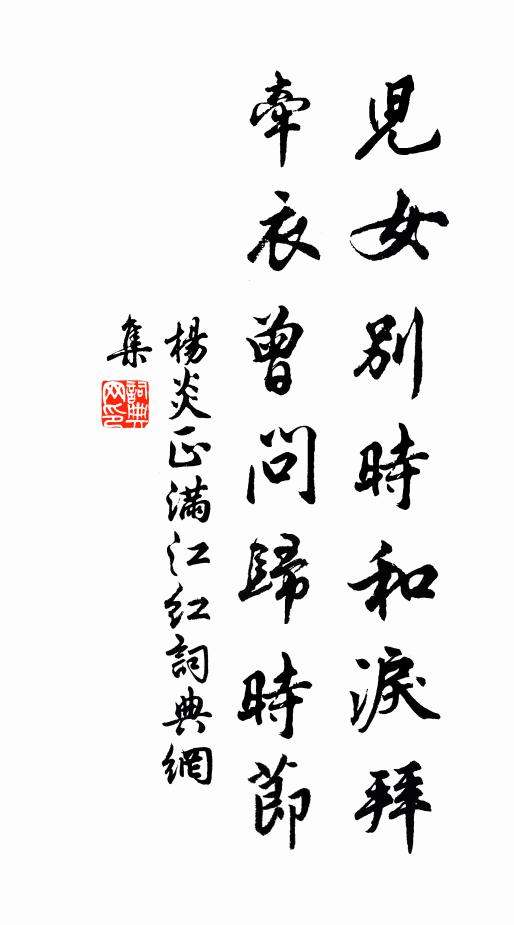 兒女別時和淚拜
牽衣曾問歸時節
楊炎正滿江紅詞典網
集
詞典
网印